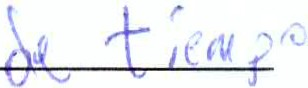 de tiempo